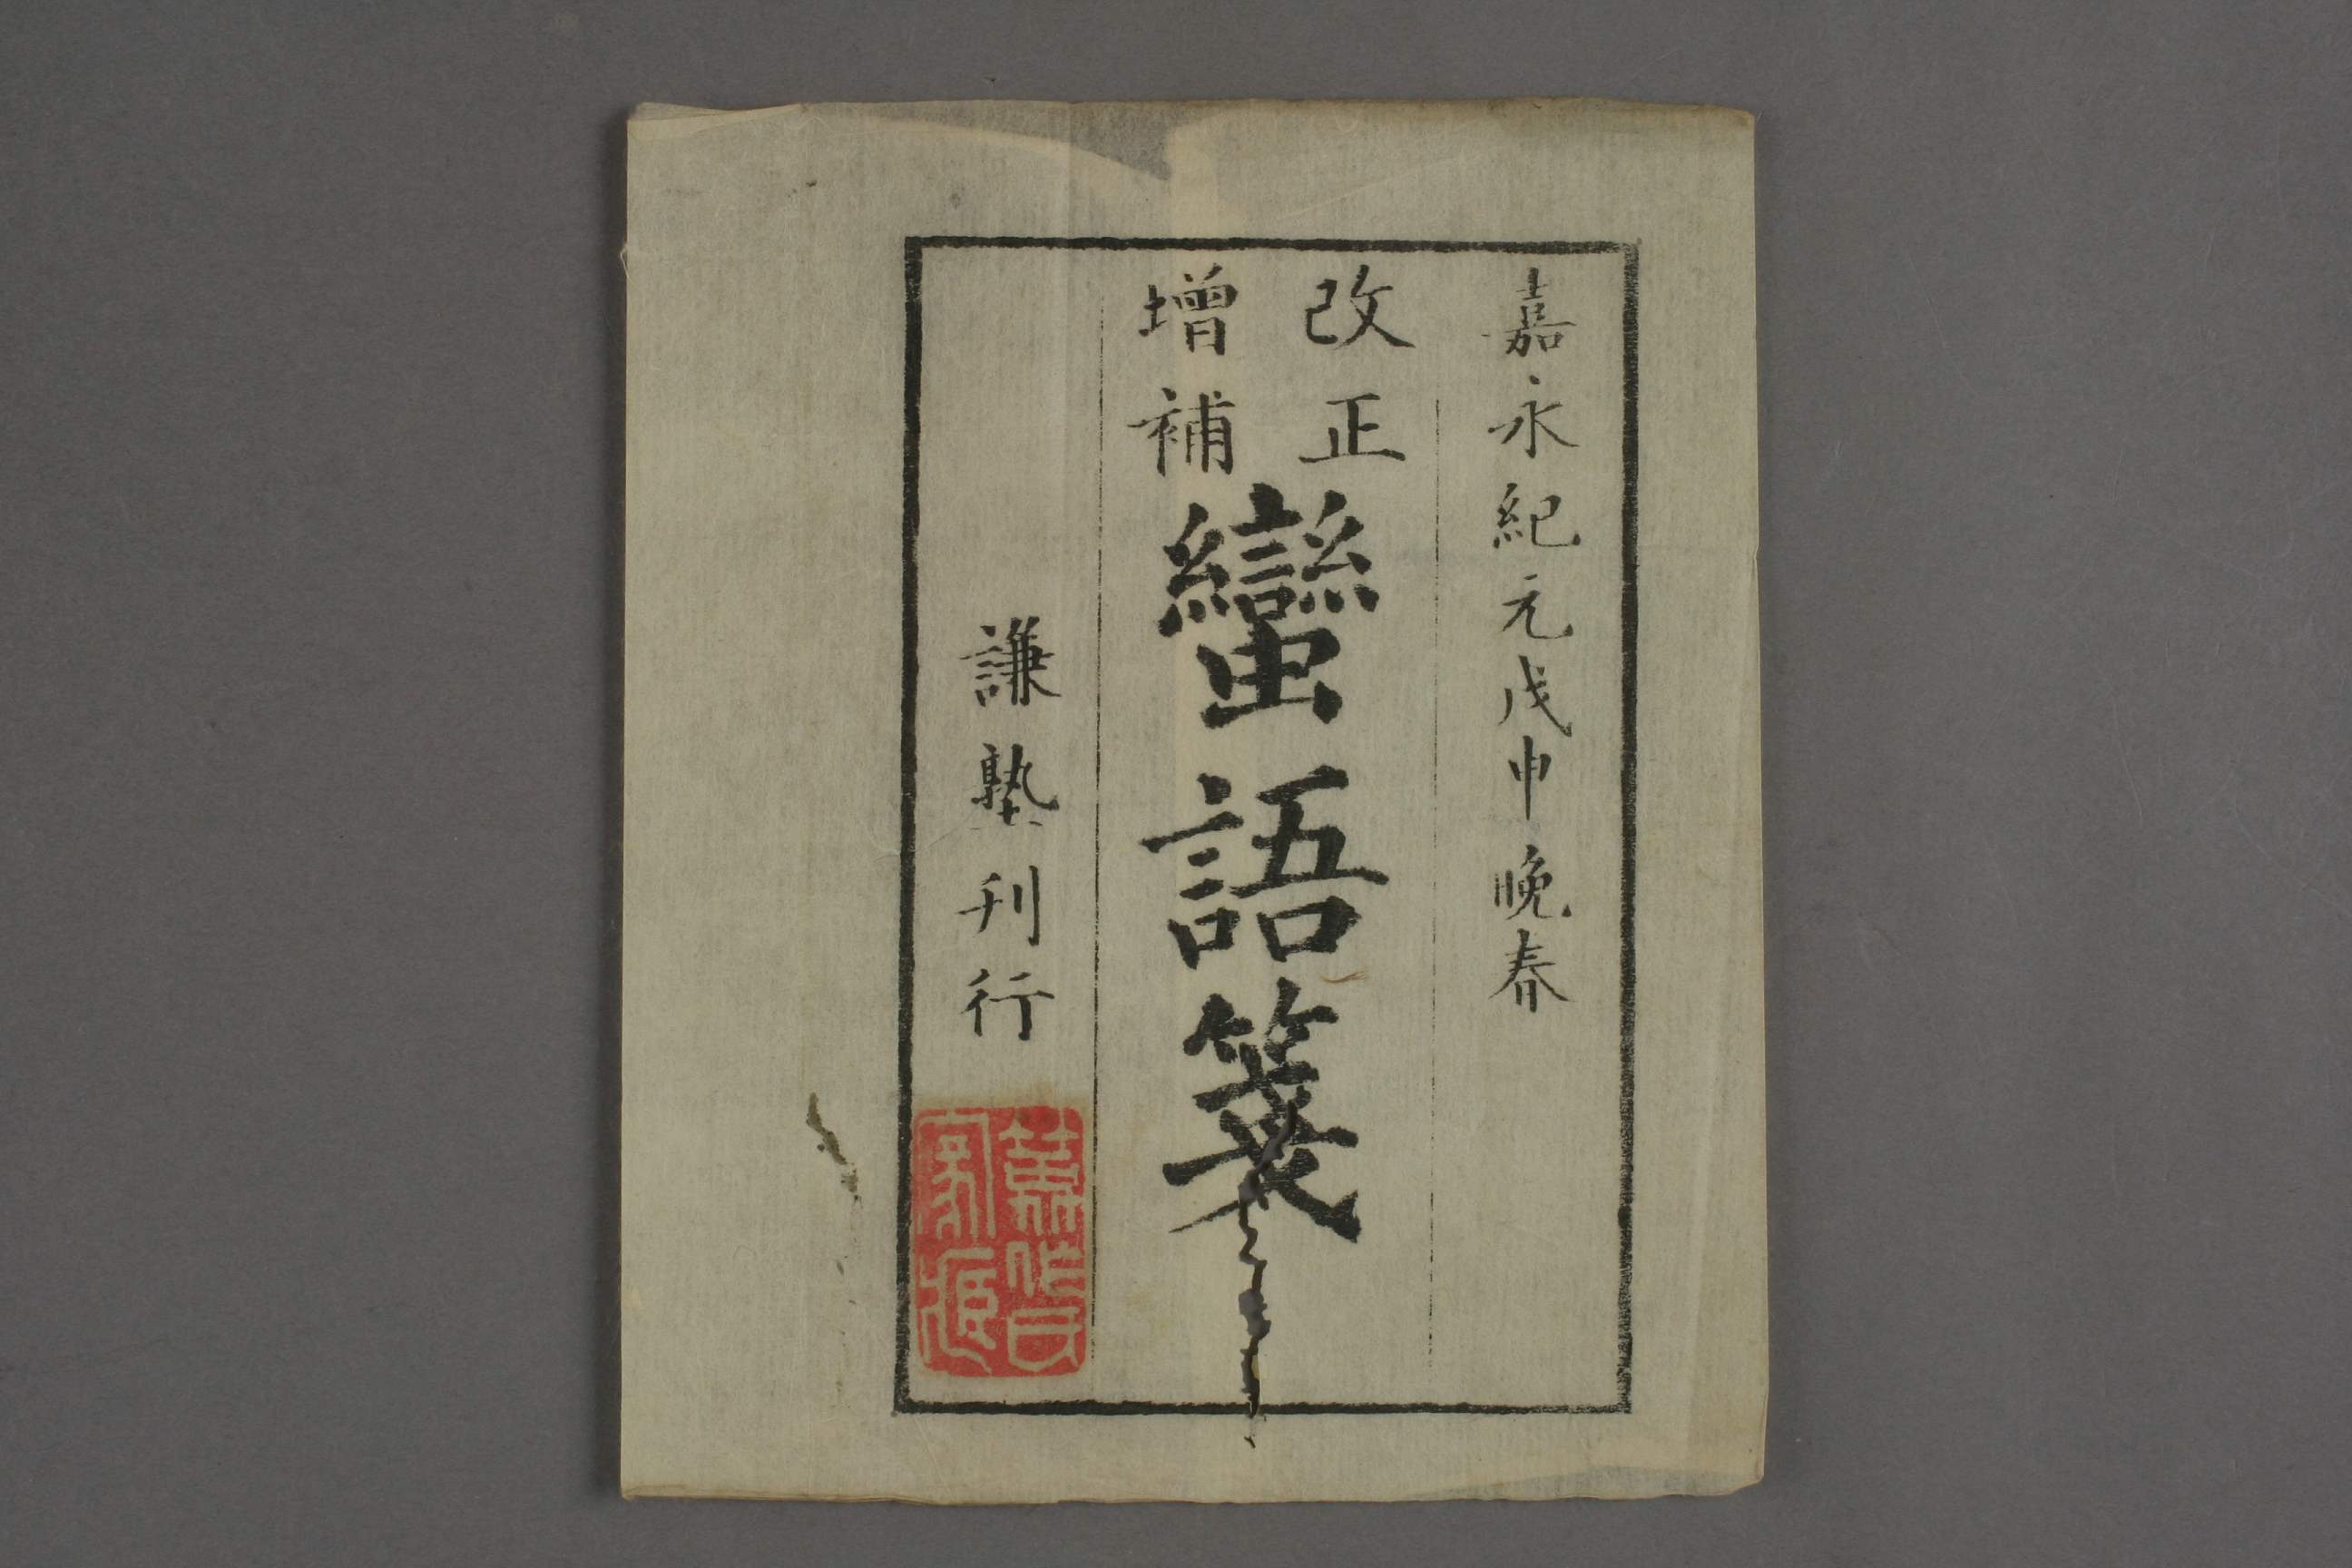 嘉永紀元戊申晩春
改正
增補
蠻語箋
謙塾刊行